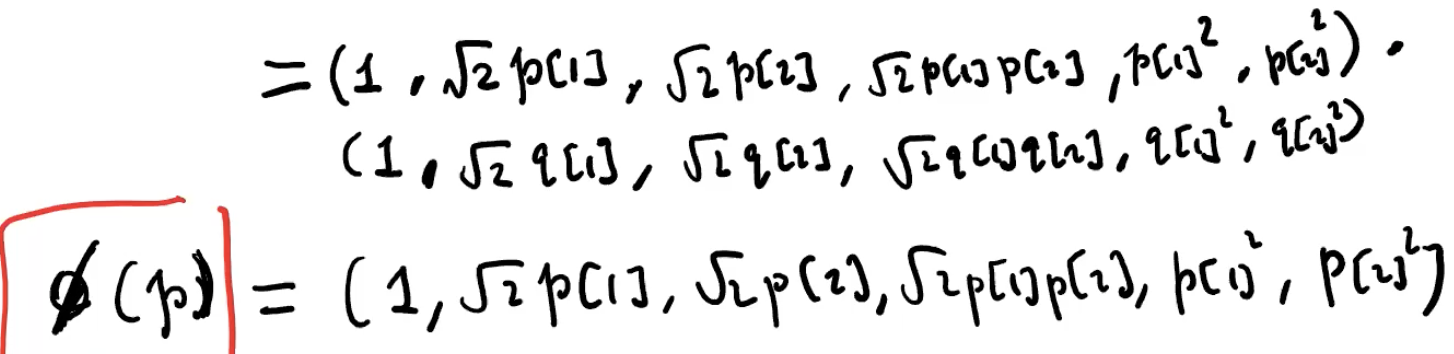 = (1, √2 p[1], √2 p[2], √2 p[1] p[2], p[1]², p[2]²) ·
(1, √2 q[1], √2 q[2], √2 q[1] q[2], q[1]², q[2]²)
ϕ(p) = (1, √2 p[1], √2 p(2), √2 p[1] p[2], p[1]², p[2]²]